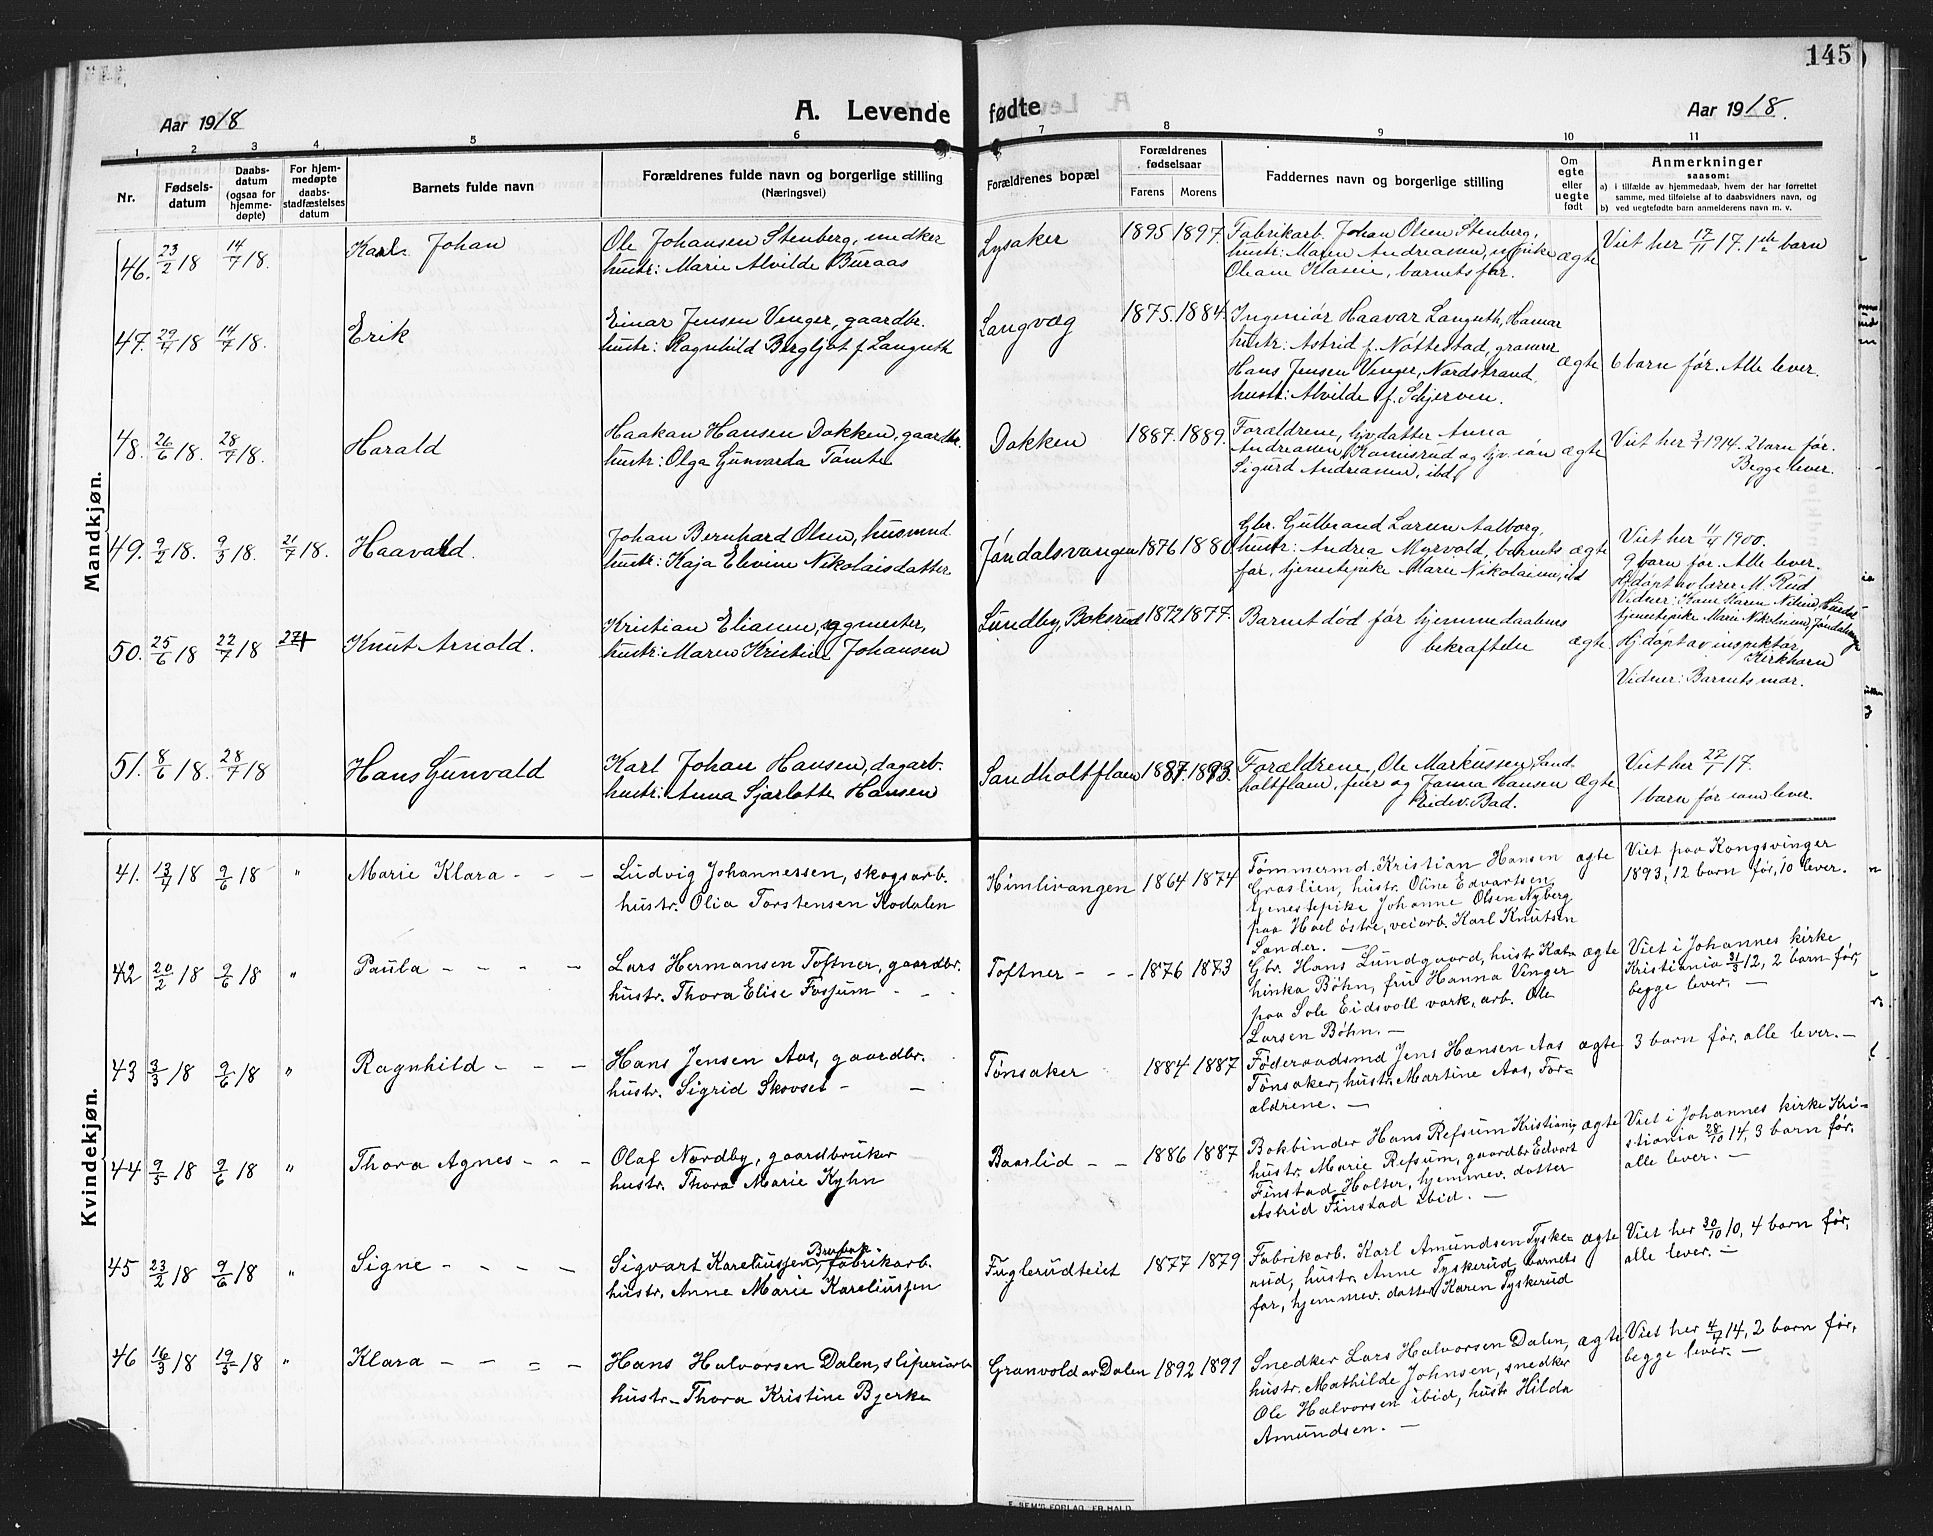 145
Aar 1918
A. Levende fødte
Aar 1918.
1 2 3 4 5 6 7 8 9 10 11
Nr.
Fødsels-
datum
Daabs-
datum
(ogsaa for
hjemme-
døpte)
For hjem-
medøpte
daabs-
stadfæstelses
datum
Barnets fulde navn
Forældrenes fulde navn og borgerlige stilling
(Næringsvei)
Forældrenes bopæl
Forældrenes
fødselsaar
Farens Morens
Faddernes navn og borgerlige stilling
Om
egte
eller
uegte
født
Anmerkninger
saasom:
a) i tilfælde av hjemmedaab, hvem der har forrettet
samme, med tilføielse af to daabsvidners navn, og
b) ved uegtefødte barn anmelderens navn m. v.
Mandkjøn.
46. 23/2 18 14/7 18. Karl Johan
Ole Johansen Stenberg, snedker
hustr: Marie Alvilde Buraas
Lysaker 1895 1897.
Fabrikarb. Johan Olsen Stenberg,
hustr: Maren Andreasen, ungpike
Oleane Klasen, barnets far.
ægte
Viet her 17/11 17. 1ste barn
47. 29/4 18 14/7 18. Erik
Einar Jensen Venger, gaardbr.
hustr: Ragnhild Bergljot f. Languth
Langvæg 1875. 1884.
Ingeniør Haavar Languth, Hamar
hustr: Astrid f. Nøttestad, gravør
Hans Jensen Venger, Nordstrand,
hustr: Alvilde f. Schjerven.
ægte
6 barn før. Alle lever.
48. 26/6 18. 28/7 18. Harald
Haakan Hansen Dokken, gaardbr.
hustr: Olga Gunvarda Tømte
Dokken 1887. 1889.
Forældrene, hjv. datter Anna
Andreasen, Ramsrud og hjv. søn
Sigurd Andreasen, ibd.
ægte
Viet her 3/7 1914. 2 barn før.
Begge lever.
49. 9/2 18. 9/3 18. 21/7 18. Haavald.
Johan Bernhard Olsen, husmand
hustr: Kaja Elevine Nikolaisdatter
Jøndalsvangen 1876 1880.
Gbr. Gulbrand Larsen Aalborg,
hustr: Andrea Myrvold, barnets
far, tjenestepike Marie Nikolaisen, ibd
ægte
Viet her 11/4 1900.
9 barn før. Alle lever.
Hjdøpt av lærer M. Rud
Vidner: Kone Karen Nilsen, Hurdal
tjenestepike Marie Nikolaisen, Jøndalsvangen
50. 25/6 18 22/7 18 Knut Arnold.
Kristian Eliassen, vognmester,
hustr: Maren Kristine Johansen
Lundby, Boksrud 1872 1877.
Barnet død før hjemmedaabens
bekræftelse
ægte
Hjdøpt av inspektør
Kirkhorn
Vidner: Barnets mor.
51. 8/6 18. 28/7 18 Hans Gunvald
Karl Johan Hansen, dagarb.
hustr: Anna Sjarlotte Hansen
Sandholtflaen 1887. 1893.
Forældrene, Ole Markussen, Sand-
holtflaen, feier og Janna Hansen
Eidsv. Bad.
ægte
Viet her 27/1 17.
1 barn før som lever.
Kvindekjøn.
41. 13/4 18 9/6 18 " Marie Klara - - -
Ludvig Johannessen, skogsarb.
hustr. Olia Torstensen Kodalen
Himlivangen 1864 1874
Tømmermd. Kristian Hansen
Graslien, hustr. Oline Edvartsen
tjenestepike Johanne Olsen Nyberg
paa Hoel østre, veiarb. Karl Knutsen
Sander. -
ægte
Viet paa Kongsvinger
1893, 12 barn før, 10 lever.
42 20/2 18 9/6 18 " Paula - - - -
Lars Hermansen Toftner, gaardbr.
hustr. Thora Elise Fossum - -
Toftner - - 1876 1873
Gbr. Hans Lundgaard, hustr. Kata-
hinka Bøhn, fru Hanna Vinger
paa Sole Eidsvoll værk, arb. Ole
Larsen Bøhn. -
ægte
Viet i Johannes kirke
Kristiania 31/3 12, 2 barn før,
begge lever. -
43 3/3 18 9/6 18 " Ragnhild - - -
Hans Jensen Aas, gaardbr.
hustr. Sigrid Skovset - -
Tønsaker 1884 1887
Føderaadsmd Jens Hansen Aas
Tønsaker, hustr. Martine Aas, For-
ældrene. -
ægte
3 barn før, alle lever. -
44 9/5 18 9/6 18 " Thora Agnes - - -
Olaf Nordby, gaardbruker -
hustr. Thora Marie Kyhn
Baarlid - - 1886 1887
Bokbinder Hans Refsum Kristiania,
hustr. Marie Refsum, gaardbr. Edvart
Finstad Holter, hjemmev. datter
Astrid Finstad ibid. -
ægte
Viet i Johannes kirke Kri-
stiania 28/10 14, 3 barn før,
alle lever. -
45 23/2 18 9/6 18 " Signe - - - -
Sigvart Kareliussen, fabrikarb.
hustr. Anne Marie Kareliussen
Fuglerudteiet 1877 1879
Fabrikarb. Karl Amundsen Tyske-
rud, hustr. Anne Tyskerud, barnets
far, hjemmev. datter Karen Tyskerud
ægte
Viet her 30/10 10, 4 barn før,
alle lever. -
46 16/3 18 19/5 18 " Klara - - = -
Hans Halvorsen Dalen, sliperiarb
hustr. Thora Kristine Bjerke
Granvold av Dalen 1892 1891
Snedker Lars Halvorsen Dalen,
hustr. Mathilde Johnsen, snedker
Ole Halvorsen ibid, hustr Hilda
Amundsen. -
ægte
Viet her 4/7 14, 2 barn før,
begge lever. -
E. SEM'S FORLAG, FR.HALD